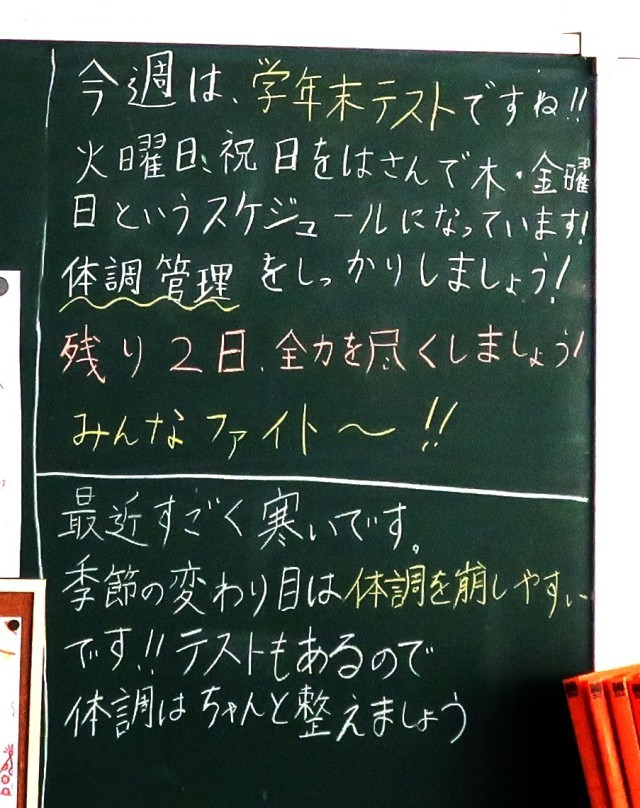 今週は、学年末テストですね!!
火曜日、祝日をはさんで木・金曜
日というスケジュールになっています!
体調管理をしっかりしましょう!
残り2日、全力を尽くしましょう!
みんなファイト〜!!
最近すごく寒いです。
季節の変わり目は体調を崩しやすい
です!!テストもあるので
体調はちゃんと整えましょう